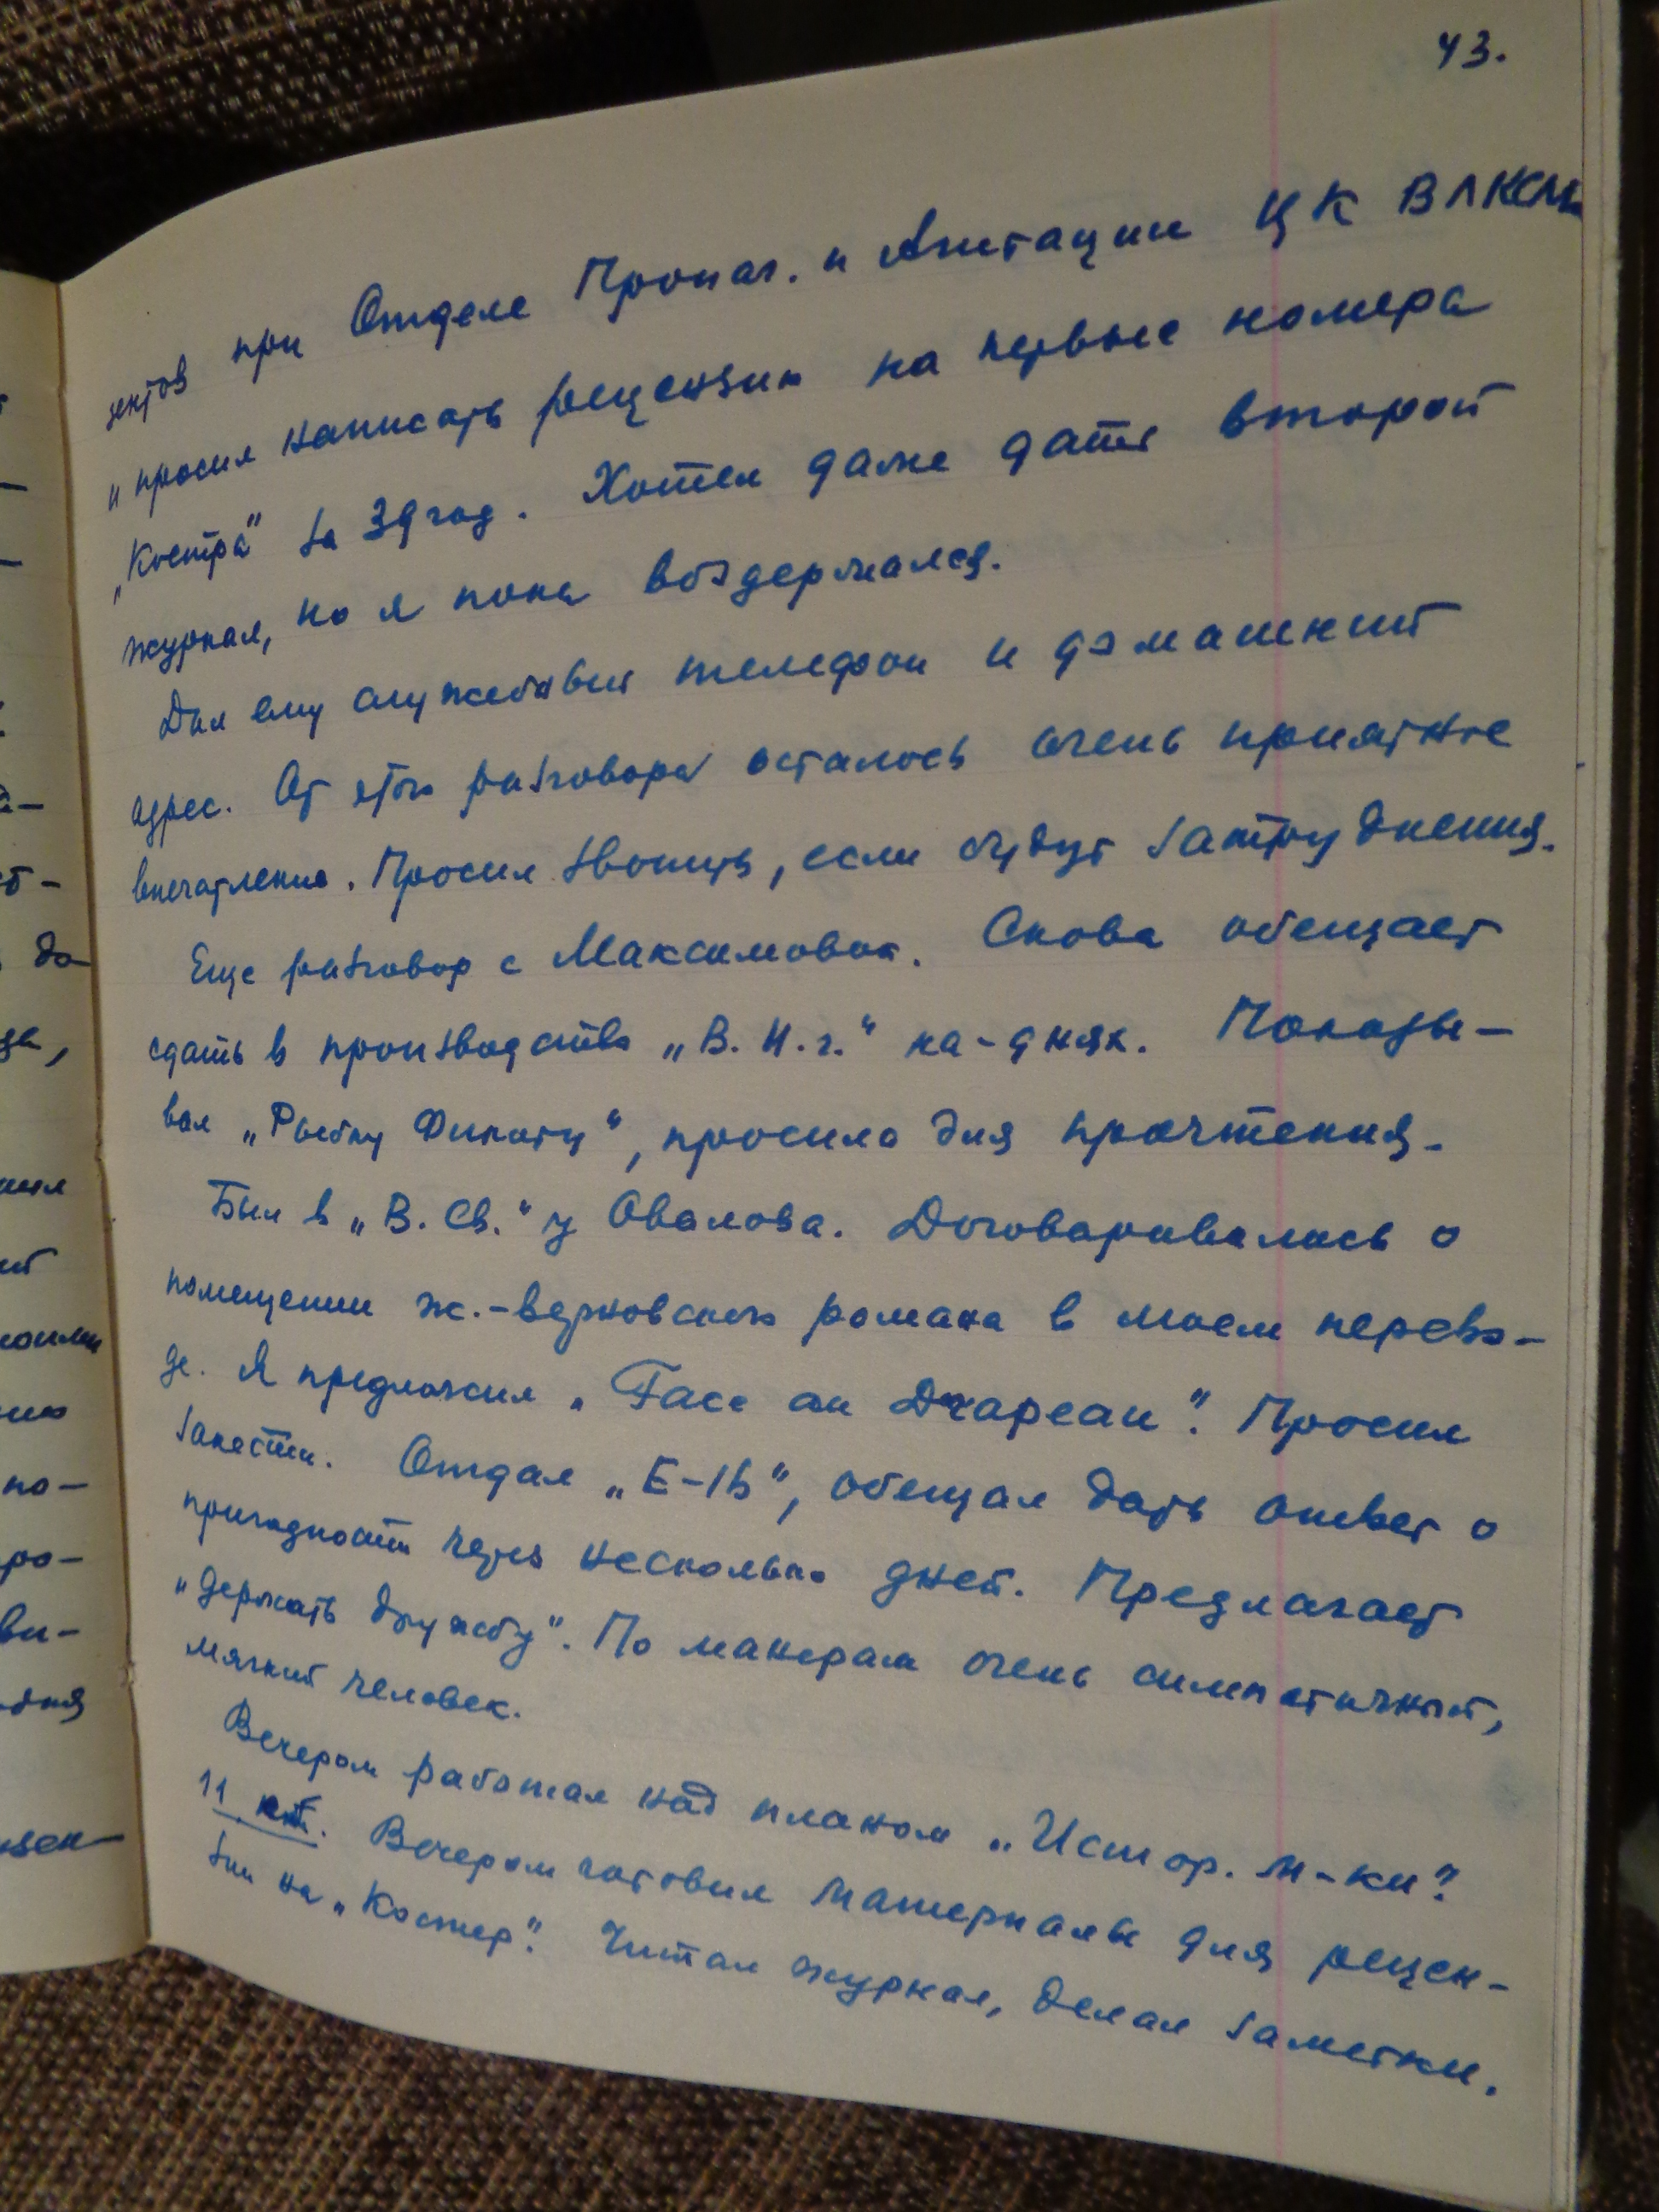 43.
зентов при Отделе Пропаг. и Агитации ЦК ВЛКСМ
и просил написать рецензию на первые номера
„Костра“ за 39 год. Хотел даже дать второй
журнал, но я пока воздержался.
Дал ему служебный телефон и домашний
адрес. От этого разговора осталось очень приятное
впечатление. Просил звонить, если будут затруднения.
Еще разговор с Максимовой. Снова обещает
сдать в производство „В. И. г.“ на-днях. Показы-
вал „Рыбку Финиту“, просила для прочтения.
Был в „В. Св.“ у Овалова. Договаривались о
помещении ж.-верновского романа в моем перево-
де. Я предложил „Гасс ан Джареан“. Просил
занести. Отдал „Е-1b“, обещал дать ответ о
пригодности через несколько дней. Предлагает
„держать дружбу“. По манерам очень симпатичный,
мягкий человек.
Вечером работал над планом „Истор. м-ки“.
11 окт. Вечером готовил материалы для рецен-
зии на „Костер“. Читал журнал, делал заметки.
да-
ви-
-дня
по-
ро-